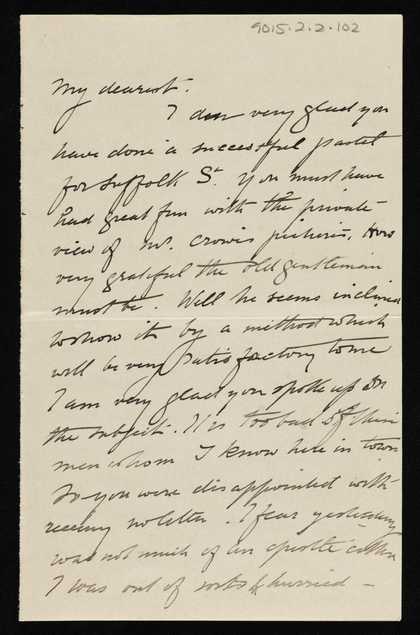 9015.2.2.102
My dearest.
I am very glad you
have done a successful pastel
for Suffolk St. You must have
had great fun with the private
view of Mr. Crow's pictures, How
very grateful the old gentleman
must be. Well he seems inclined
to show it by a method which
will be very satisfactory to me
I am very glad you spoke up on
the subject. It is too bad of their
men whom I know here in town
So you were disappointed with
no letter. I fear yesterdays
was not much of an epistle either
I was out of sorts & hurried –